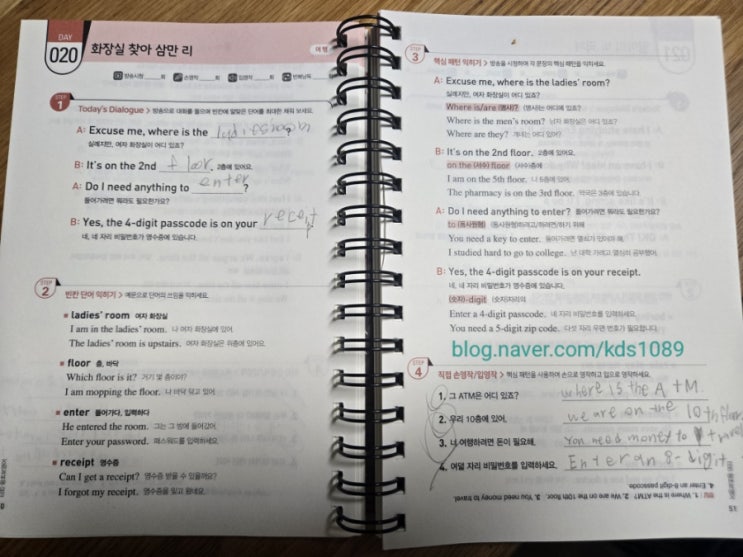 DAY
020
화장실 찾아 삼만 리
여행
방송시청 ___회
손영작 ___회
입영작 ___회
반복낭독
STEP 1
Today's Dialogue > 방송으로 대화를 들으며 빈칸에 알맞은 단어를 최대한 채워 보세요.
A: Excuse me, where is the ladiesroom ?
실례지만, 여자 화장실이 어디 있죠?
B: It's on the 2nd floor. 2층에 있어요.
A: Do I need anything to enter ?
들어가려면 뭐라도 필요한가요?
B: Yes, the 4-digit passcode is on your
네, 네 자리 비밀번호가 영수증에 있습니다.
STEP 2
빈칸 단어 익히기 > 예문으로 단어의 쓰임을 익히세요.
ladies' room 여자 화장실
I am in the ladies' room. 나 여자 화장실에 있어.
The ladies' room is upstairs. 여자 화장실은 위층에 있어요.
floor 층, 바닥
Which floor is it? 거기 몇 층이야?
I am mopping the floor. 나 바닥 닦고 있어.
enter 들어가다, 입력하다
He entered the room. 그는 그 방에 들어갔어.
Enter your password. 패스워드를 입력하세요.
receipt 영수증
Can I get a receipt? 영수증 받을 수 있을까요?
I forgot my receipt. 영수증을 잊고 왔네요.
STEP 3
핵심 패턴 익히기 > 방송을 시청하며 각 문장의 핵심 패턴을 익히세요.
A: Excuse me, where is the ladies' room?
실례지만, 여자 화장실이 어디 있죠?
Where is/are (명사)? (명사)는 어디에 있죠?
Where is the men's room? 남자 화장실은 어디 있죠?
Where are they? 걔네는 어디 있어?
B: It's on the 2nd floor. 2층에 있어요.
on the (서수) floor (서수)층에
I am on the 5th floor. 나 5층에 있어.
The pharmacy is on the 3rd floor. 약국은 3층에 있습니다.
A: Do I need anything to enter? 들어가려면 뭐라도 필요한가요?
to (동사원형) (동사원형)하려고/하려면/하기 위해
You need a key to enter. 들어가려면 열쇠가 있어야 해.
I studied hard to go to college. 난 대학 가려고 열심히 공부했어.
B: Yes, the 4-digit passcode is on your receipt.
네, 네 자리 비밀번호가 영수증에 있습니다.
(숫자)-digit (숫자)자리의
Enter a 4-digit passcode. 네 자리 비밀번호를 입력하세요.
You need a 5-digit zip code. 다섯 자리 우편 번호가 필요합니다.
blog.naver.com/kds1089
STEP 4
직접 손영작/입영작 > 핵심 패턴을 사용하여 손으로 영작하고 입으로 영작하세요.
1. 그 ATM은 어디 있죠? where is the A + M.
2. 우리 10층에 있어. we are on the 10th floor
3. 너 여행하려면 돈이 필요해. You need money to travel
4. 여덟 자리 비밀번호를 입력하세요. Enter an 8-digit
정답 1. Where is the ATM? 2. We are on the 10th floor. 3. You need money to travel.
4. Enter an 8-digit passcode.
51